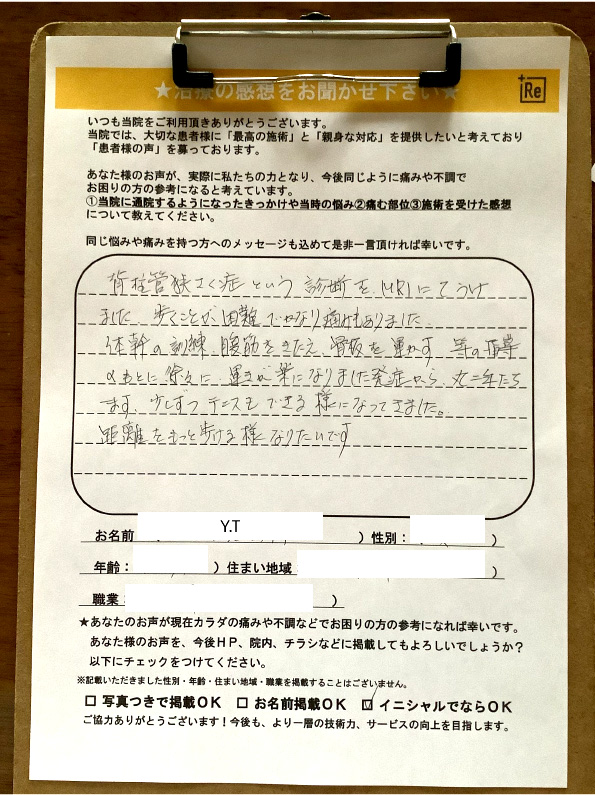 ★治療の感想をお聞かせ下さい★
Re
いつも当院をご利用頂きありがとうございます。
当院では、大切な患者様に「最高の施術」と「親身な対応」を提供したいと考えており
「患者様の声」を募っております。
あなた様のお声が、実際に私たちの力となり、今後同じように痛みや不調で
お困りの方の参考になると考えています。
①当院に通院するようになったきっかけや当時の悩み②痛む部位③施術を受けた感想
について教えてください。
同じ悩みや痛みを持つ方へのメッセージも込めて是非一言頂ければ幸いです。
脊柱管狭さく症という 診断を MRIにてうけ
ました。歩くことが困難でかなり痛みもありました。
体幹の訓練 腹筋をきたえ、骨盤を動かす 等の指導
のもとに 徐々に 動きが楽になりました発症から、丸二年たち
ます。少しずつ テニスも できる 様になってきました。
距離をもっと歩ける様になりたいです
お名前 Y.T ）性別： ）
年齢： ）住まい地域 ）
職業： ）
★あなたのお声が現在カラダの痛みや不調などでお困りの方の参考になれば幸いです。
あなた様のお声を、今後ＨＰ、院内、チラシなどに掲載してもよろしいでしょうか？
以下にチェックをつけてください。
※記載いただきました性別・年齢・住まい地域・職業を掲載することはございません。
☐ 写真つきで掲載ＯＫ ☐ お名前掲載ＯＫ ☑ イニシャルでならＯＫ
ご協力ありがとうございます！今後も、より一層の技術力、サービスの向上を目指します。